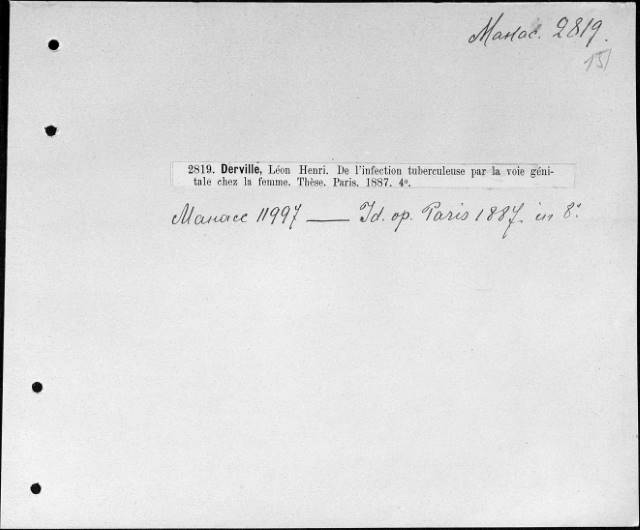 2819.
15
2819. Derville, Léon Henri. De l'infection tuberculeuse par la voie géni-
tale chez la femme. Thèse. Paris. 1887. 4°.
11997 —— Id. op. Paris 1887. in 8°.